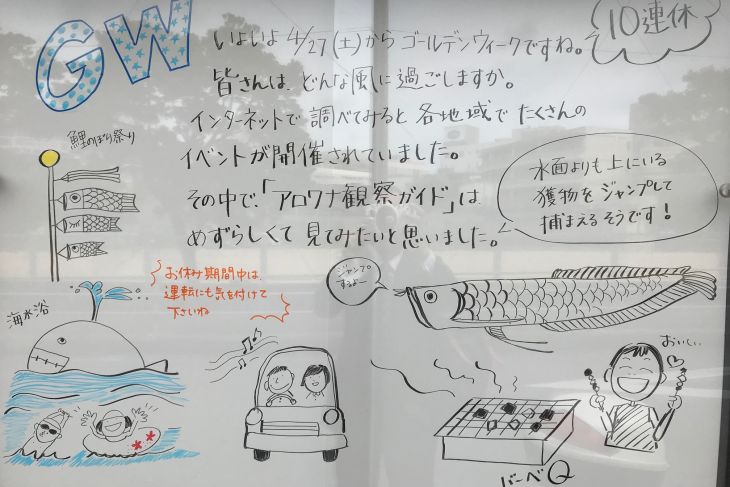 GW
10連休
いよいよ4/27(土)からゴールデンウィークですね。
皆さんは、どんな風に過ごしますか。
インターネットで調べてみると各地域でたくさんの
イベントが開催されていました。
その中で、「アロワナ観察ガイド」は、
めずらしくて見てみたいと思いました。
水面よりも上にいる
獲物をジャンプして
捕まえるそうです!
鯉のぼり祭り
お休み期間中は、
運転にも気を付けて
下さいね
ジャンプ
するよー
海水浴
おいしい
バーベQ